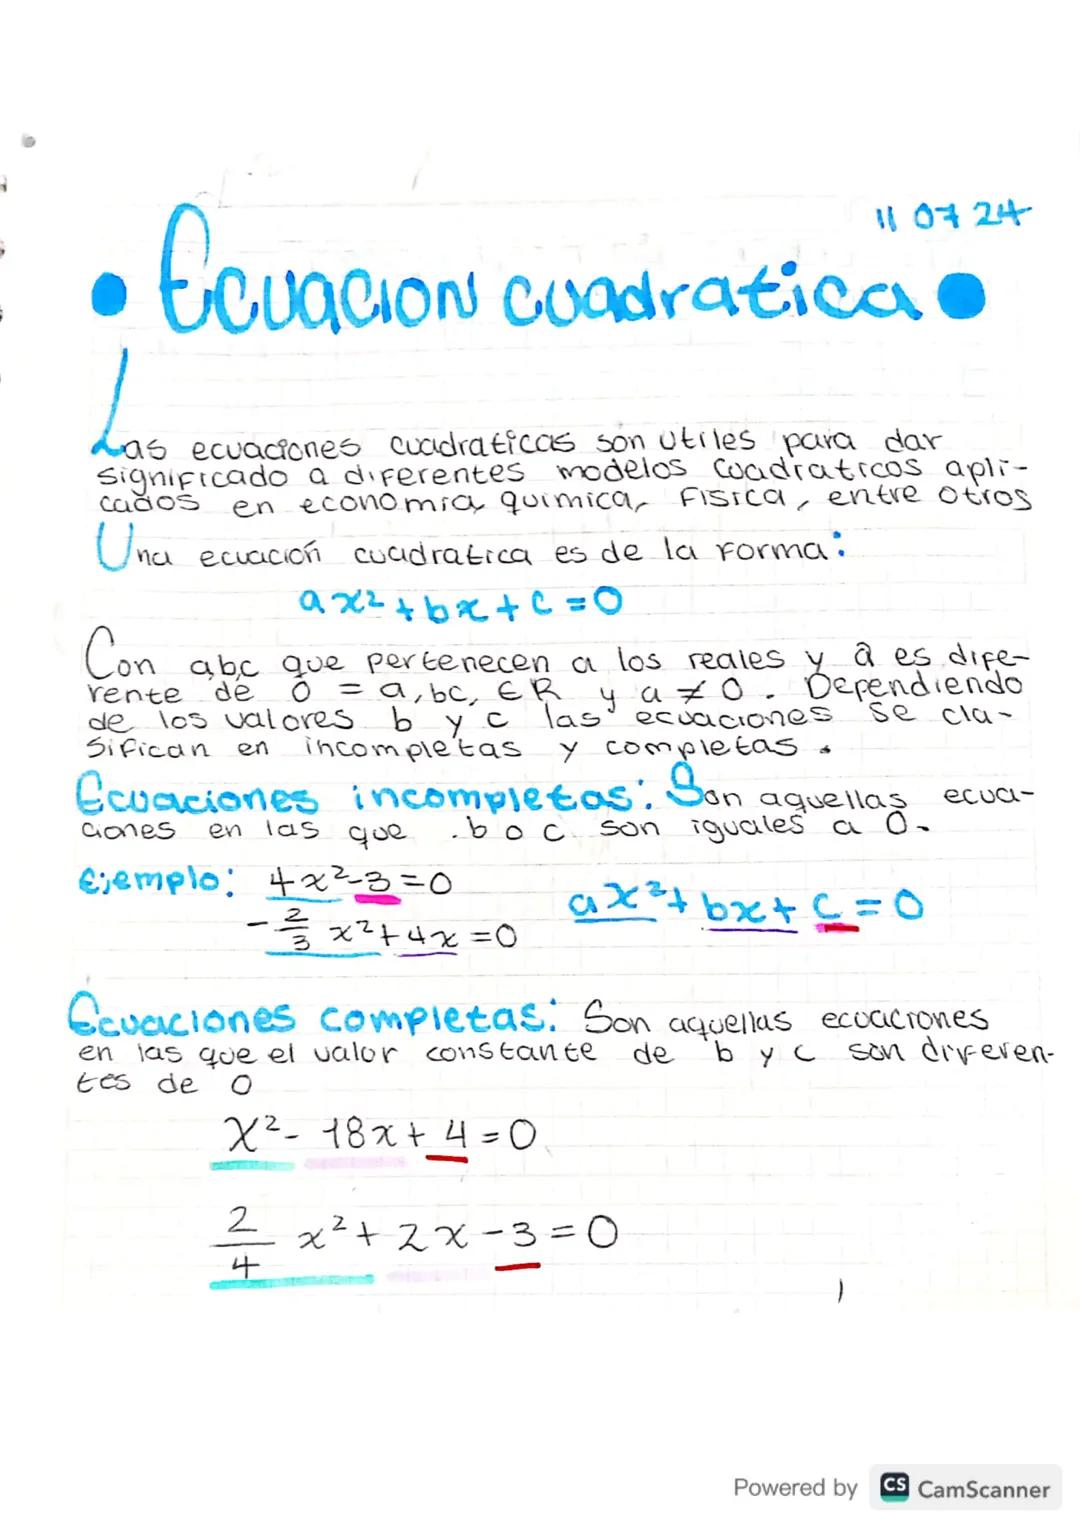 11 07 24
• Ecuacion cuadratica •
Las ecuaciones cuadraticas son utiles para dar
significado a diferentes modelos cuadraticos apli-
cados en economia, quimica, Fisica, entre otros
Una ecuación cuadratica es de la forma:
ax² + bx + c = 0
Con abc que pertenecen a los reales y a es dife-
rente de 0 = a, bc, ∈ R y a ≠ 0. Dependiendo
de los valores b y c las ecuaciones se cla-
sifican en incompletas y completas.
Ecuaciones incompletas: Son aquellas ecua-
ciones en las que b o c son iguales a 0.
Ejemplo: 4x²-3=0
ax²+ bx + c = 0
-2/3 x²+4x=0
Ecuaciones completas: Son aquellas ecuaciones
en las que el valor constante de b y c son diferen-
tes de 0
x²- 18x + 4 = 0
2/4 x² + 2x - 3 = 0
Powered by CS CamScanner